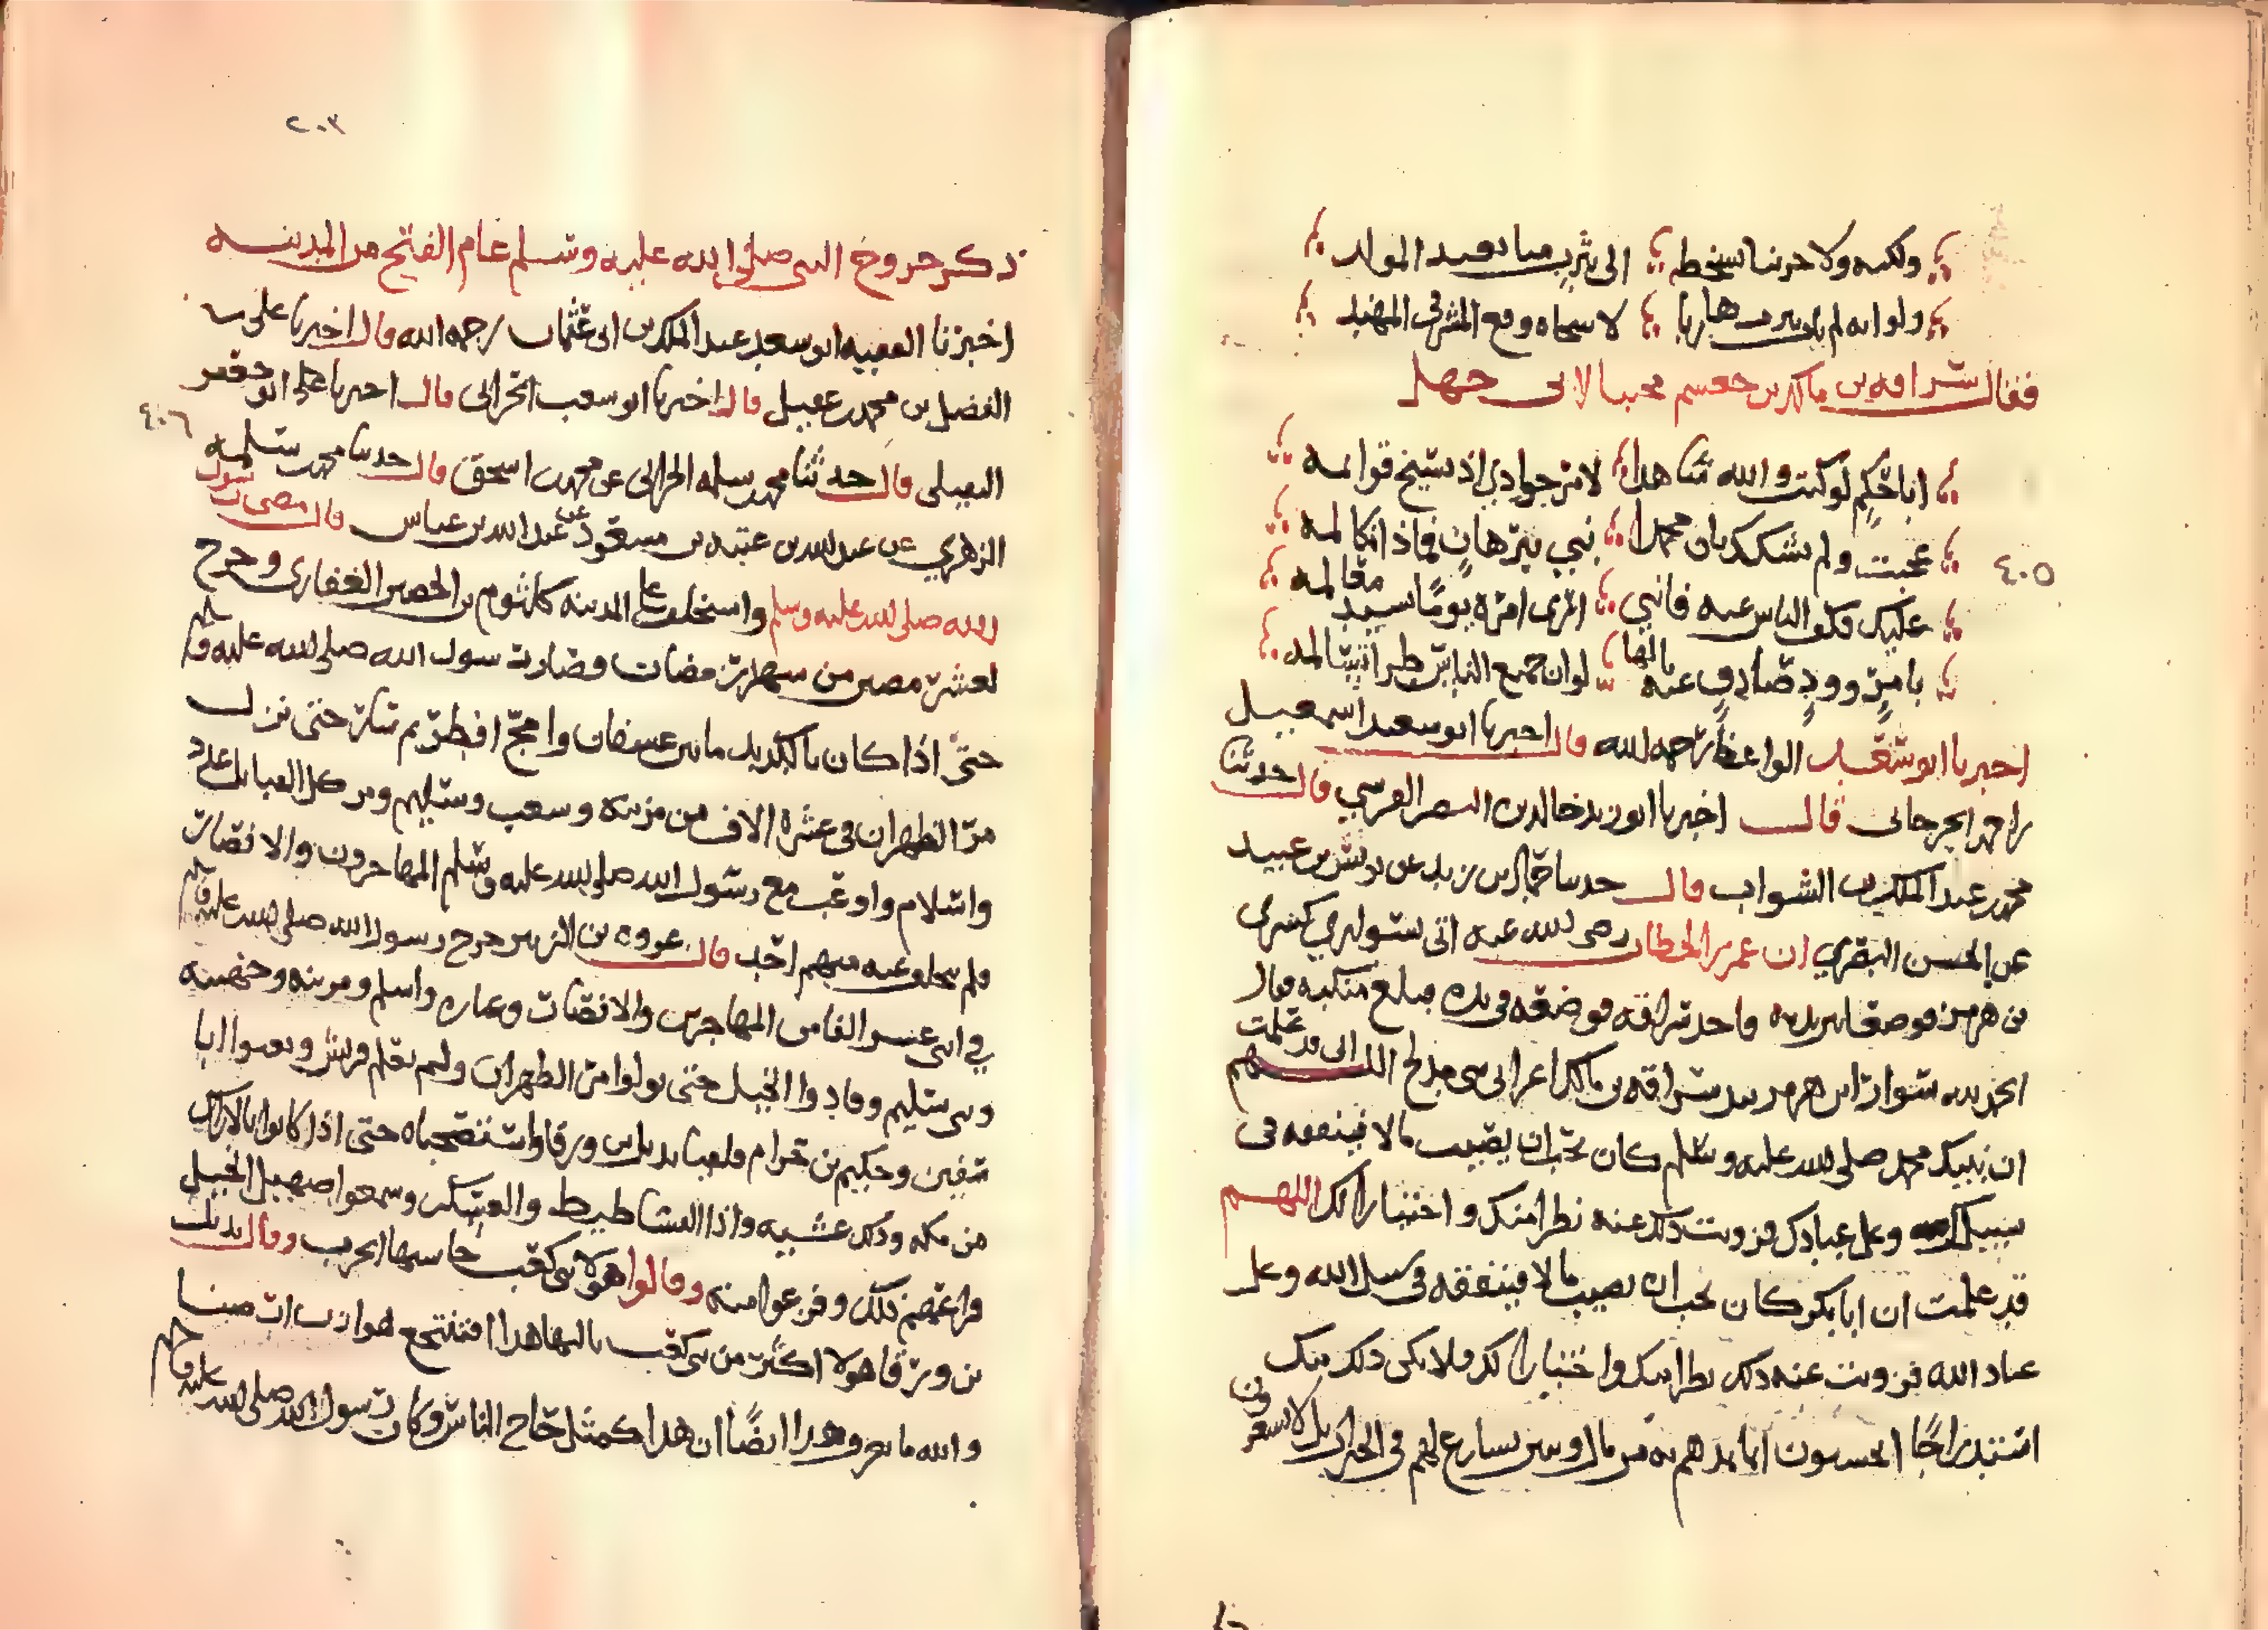 ولكنه ولا حربا سخطه الى يثرب منا بعيد المولد
ولو انه لم يات يثرب هاربا لاشجاه وقع المشرفي المهند
فقال سراقه بن مالك بن جعسم مجيبا لابى جهل
اباحكم لو كنت والله شاهدا لامر جوادي اذ تسيخ قوائمه
عجبت ولم تشكك بان محمدا نبي ببرهان فماذا يكاتمه
عليك فكف الناس عنه فانني ارى امره يوما سيبد معالمه
بامر وود صادف عنه بالها لو ان جميع الناس طرا تسالمه
اخبرنا ابو سعد الواعظ رحمه الله قال اخبرنا ابو سعيد اسمعيل
بن احمد الجرجاني قال اخبرنا ابو زيد خالد بن النضر القرسي قال حدثنا
محمد بن عبد الملك بن الشواب قال حدثنا حماد بن زيد عن يونس بن عبيد
عن الحسن البصري ان عمر بن الخطاب رضى الله عنه اتى بسواري كسرى
بن هرمز فوضعا بين يديه واخد سراقه فوضعه في يده فبلغ منكبيه فقال
الحمد لله سوارا بن هرمز بيد سراقه بن مالك اعرابي من بني مدلج اللهم اني قد علمت
ان نبيك محمد صلى الله عليه وسلم كان يحب ان يصيب مالا فينفقه في
سبيلك وعلى عبادك فزويت ذلك عنه نظرا منك واختيارا لك اللهم
قد علمت ان ابا بكر كان يحب ان يصيب مالا فينفقه في سبيل الله وعلى
عباد الله فزويت عنه ذلك نظرا منك واختيارا لك ولا يكن ذلك منك
استدراجا ايحسبون انما نمدهم به من مال وبنين نسارع لهم في الخيرات بل لا يشعرون
٤٠٥
٢٠٣
ذكر خروج النبى صلى الله عليه وسلم عام الفتح من المدينه
اخبرنا الفقيه ابو سعد عبد الملك بن ابى عثمان رحمه الله قال اخبرنا على بن
الفضل بن محمد بن عقيل قال اخبرنا ابو سعيب الحراني قال اخبرنا على ابو جعفر
النفيلى قال حدثنا محمد بن سلمه الحراني عن محمد بن اسحق قال حدثنا محمد بن مسلمه
الزهري عن عبد الله بن عتبه بن مسعود عن عبد الله بن عباس قال مضى رسول
الله صلى الله عليه وسلم واستخلف على المدينه كلثوم بن الحصين الغفاري وخرج
لعشر مضين من شهر رمضان وصار رسول الله صلى الله عليه وسلم
حتى اذا كان بالكديد ما بين عسفان وامجج افطر ثم سار حتى نزل
مر الظهران في عشره الاف من مزينه وسعب وسليم ومن كل القبائل عدد
واسلام واوعب مع رسول الله صلى الله عليه وسلم المهاجرون والانصار
فلم يتخلف عنه منهم احد قال عروه بن الزبير خرج رسول الله صلى الله عليه وسلم
في اثنى عسر الفا من المهاجرين والانصار وغفار واسلم ومزينه وجهينه
وبنى سليم وقادوا الخيل حتى نزلوا مر الظهران ولم تعلم قريش وبعثوا ابا
سفين وحكيم بن حزام فلقيا بديل بن ورقا واستصحباه حتى اذا كانوا بالاراك
من مكه وذلك عشيه واذا الفساطيط والعسكر وسمعوا صهيل الخيل
فراعهم ذلك وفزعوا منه وقالوا هولا بني كعب حاستها الحرب وقال بديل
بن ورقا هولا اكثر من بنى كعب ما بالها هذا افتنتجع هوازن ارضنا
والله ما نعرف هذا ايضا ان هذا كمثل حاج الناس وكان رسول الله صلى الله عليه وسلم
٤٠٦